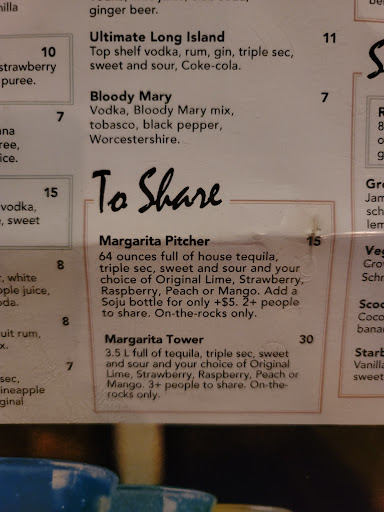 nilla
10
strawberry
puree.
7
ana
ree,
ice.
15
vodka,
, sweet
8
, white
ple juice,
oda.
8
uit rum,
x.
7
sec,
ineapple
ginal
ginger beer.
Ultimate Long Island 11
Top shelf vodka, rum, gin, triple sec,
sweet and sour, Coke-cola.
Bloody Mary 7
Vodka, Bloody Mary mix,
tobasco, black pepper,
Worcestershire.
To Share
Margarita Pitcher 15
64 ounces full of house tequila,
triple sec, sweet and sour and your
choice of Original Lime, Strawberry,
Raspberry, Peach or Mango. Add a
Soju bottle for only +$5. 2+ people
to share. On-the-rocks only.
Margarita Tower 30
3.5 L full of tequila, triple sec, sweet
and sour and your choice of Original
Lime, Strawberry, Raspberry, Peach or
Mango. 3+ people to share. On-the-
rocks only.
S
R
8
o
g
Gre
Jam
sch
lem
Veg
Crov
Schn
Scoo
Coco
banan
Starb
Vanilla
sweet